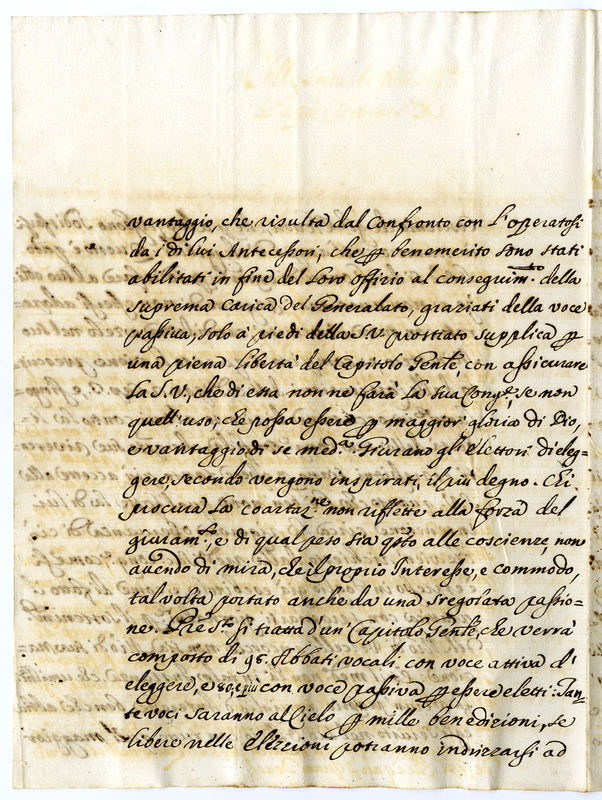 vantaggio, che risulta dal Confronto con l'operatosi
da i di lui Antecessori, che ꝑ benemerito sono stati
abilitati in fine del loro offizio al conseguim.to della
suprema Carica del Generalato, graziati della voce
passiva; solo à piedi della S.V. prostrato supplica ꝑ
una piena libertà del Capitolo Gen̄le, con assicurare
la S.V., che di essa non ne farà la sua Cong.e, se non
quell'uso, che possa essere ꝑ maggior gloria di Dio,
e vantaggio di se med.a. Giurano gl'Elettori di eleg=
gere, secondo vengono inspirati, il più degno. Chi
procura la coartaz.ne non riflette alla forza del
giuram.to, e di qual peso sia q̄sto alle coscienze, non
avendo di mira, che il proprio Interesse, e commodo,
talvolta portato anche da una sregolata passio=
ne. P̄re S.to si tratta d'un Capitolo Gen̄le, che verrà
composto di 96. Abbati vocali con voce attiva d'
eleggere, e 80, e più con voce passiva ꝑ essere eletti. Tan=
te voci saranno al Cielo ꝑ mille benedizioni, se
libere nelle Elezzioni potranno indrizzarsi ad